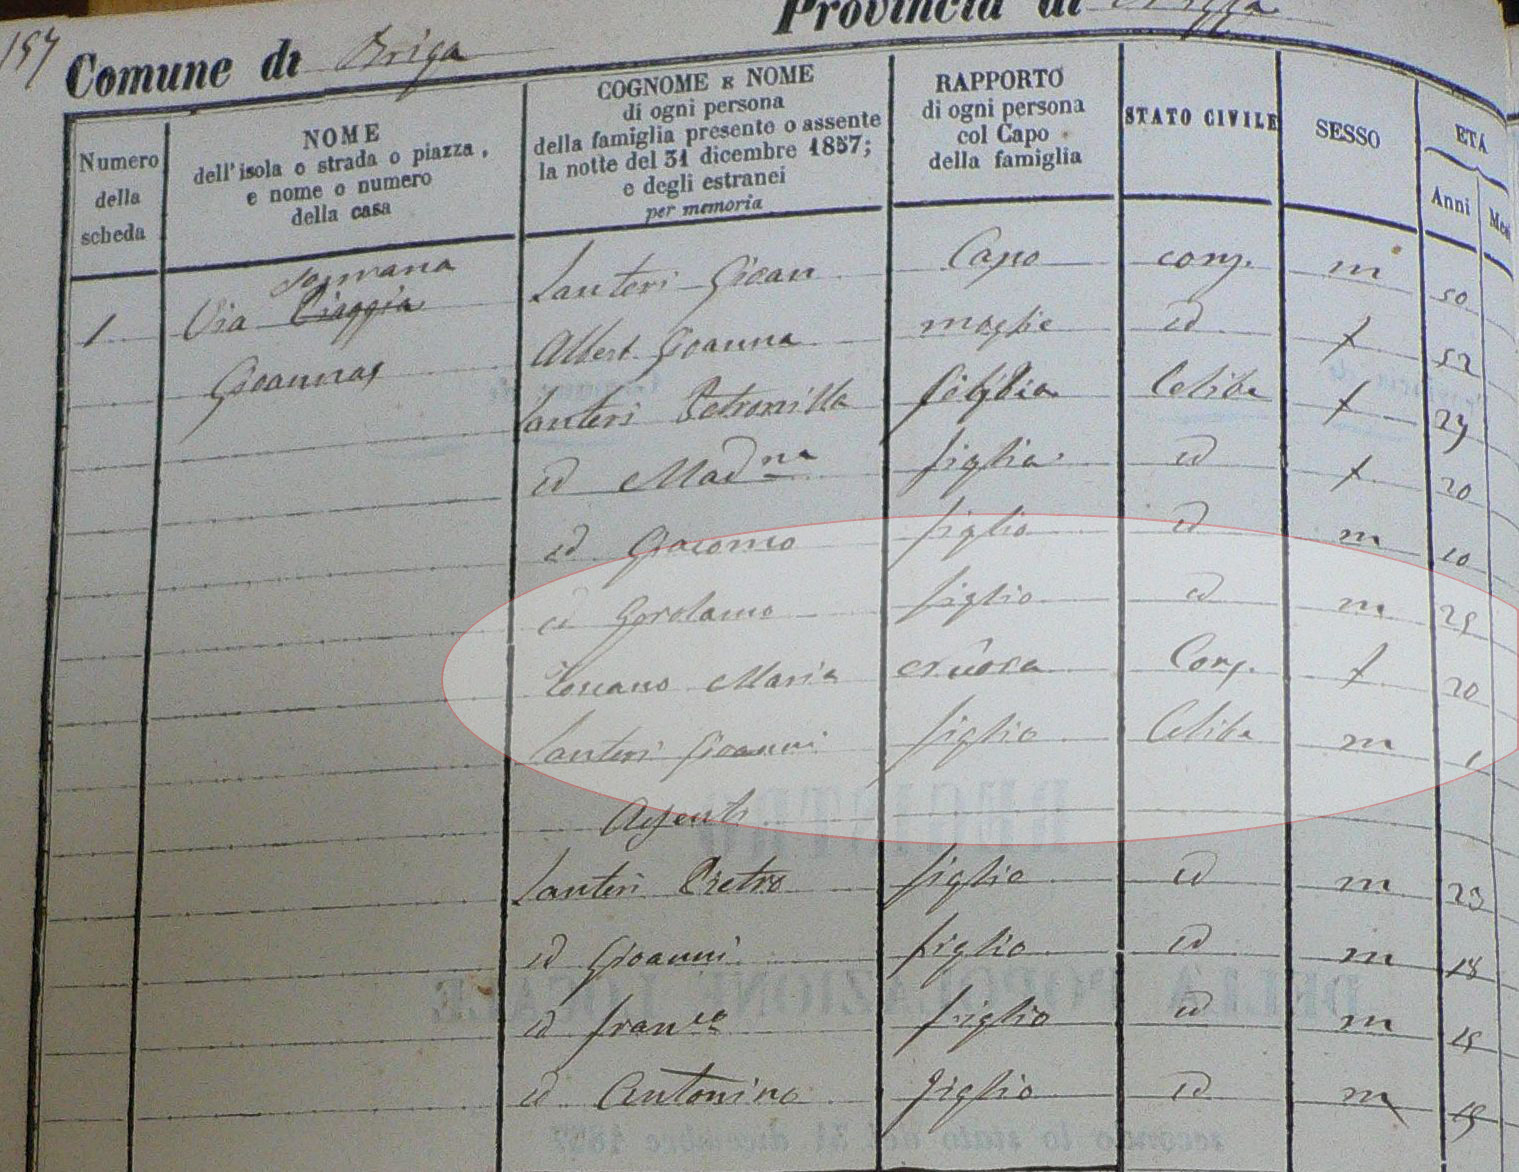 157
Comune di Briga
Provincia di
Numero
della
scheda
NOME
dell'isola o strada o piazza,
e nome o numero
della casa
COGNOME E NOME
di ogni persona
della famiglia presente o assente
la notte del 31 dicembre 1857;
e degli estranei
per memoria
RAPPORTO
di ogni persona
col Capo
della famiglia
STATO CIVILE
SESSO
ETÀ
Anni
Mesi
soprana
1 Via Piaggia Lanteri Gioan Capo conj. m 50
Gioannas Albert Gioanna moglie id f 52
Lanteri Petronilla figlia Celibe f 27
id Madna figlia id f 20
id Giacomo figlio id m 10
id Girolamo figlio id m 25
Toscano Maria nuora Conj. f 20
Lanteri Gioanni figlio Celibe m 1
Assenti
Lanteri Pietro figlio id m 23
id Gioanni figlio id m 18
id Franco figlio id m 15
id Antonino figlio id m 15
REGISTRO
DELLA POPOLAZIONE LOCALE
secondo lo stato del 31 dicembre 1857